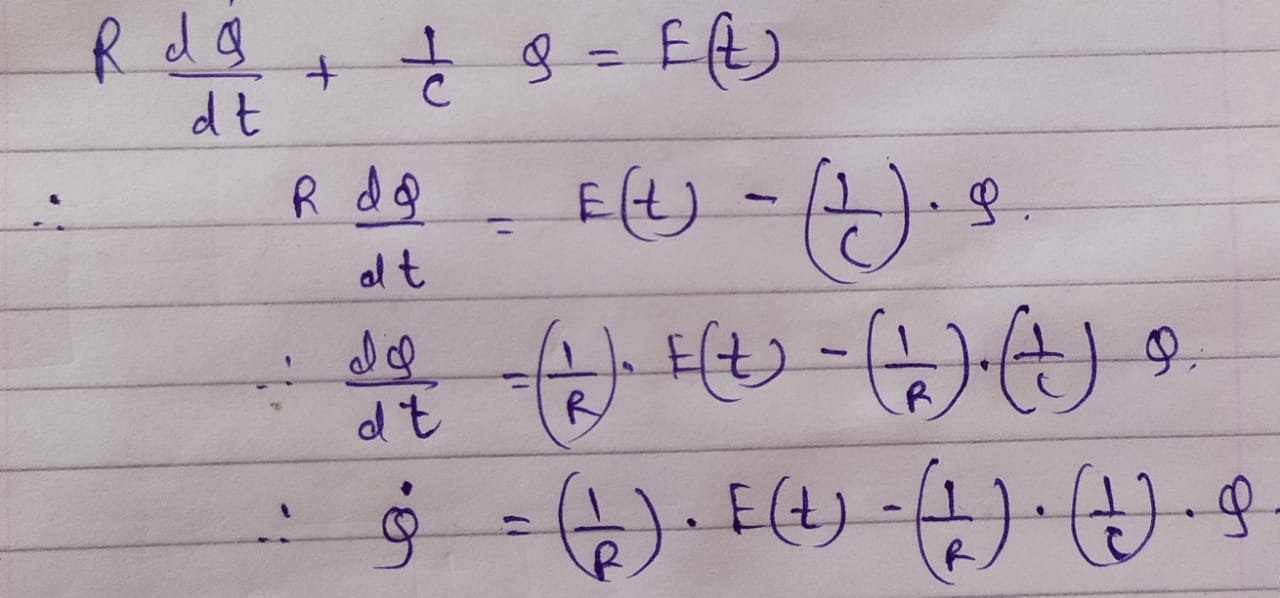 R dQ/dt + 1/C Q = E(t)
∴ R dQ/dt = E(t) - (1/C) · Q.
∴ dQ/dt = (1/R) · E(t) - (1/R) · (1/C) Q.
∴ Q̇ = (1/R) · E(t) - (1/R) · (1/C) · Q.